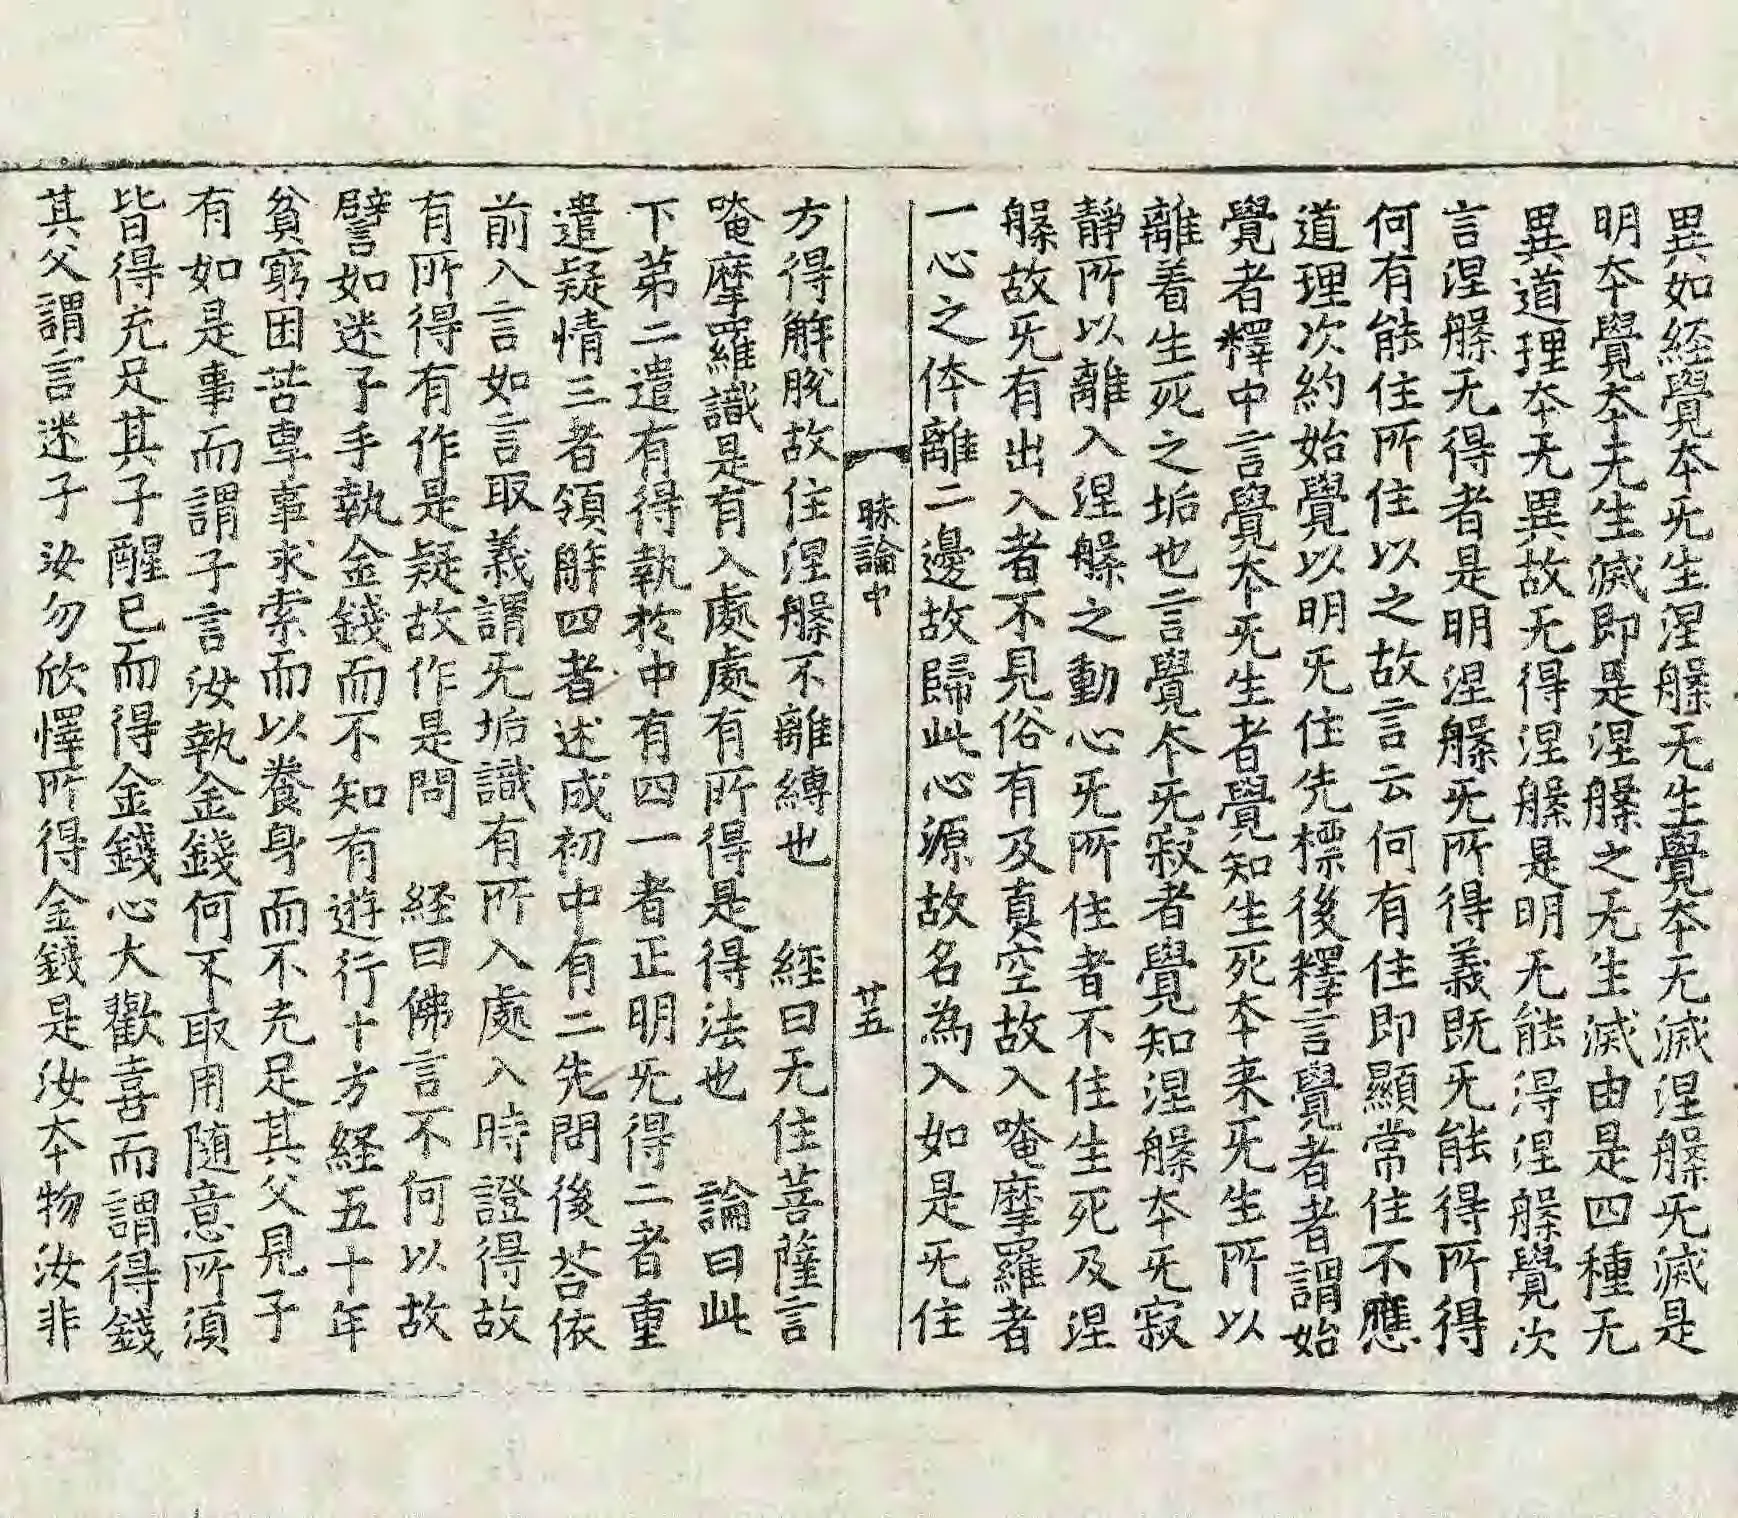 異如經覺本旡生涅槃旡生覺本无滅涅槃旡滅是
明本覺本无生滅即是涅槃之无生滅由是四種无
異道理本无異故无得涅槃是明无能得涅槃覺次
言涅槃无得者是明涅槃旡所得義既旡能得所得
何有能住所住以之故言云何有住即顯常住不應
道理次約始覺以明旡住先標後釋言覺者者謂始
覺者釋中言覺本旡生者覺知生死本来旡生所以
離着生死之垢也言覺本旡寂者覺知涅槃本旡寂
靜所以離入涅槃之動心旡所住者不住生死及涅
槃故旡有出入者不見俗有及真空故入唵摩羅者
一心之体離二邊故歸此心源故名為入如是旡住
昧論中 廿五
方得解脫故住涅槃不離縛也 經曰无住菩薩言
唵摩羅識是有入處處有所得是得法也 論曰此
下苐二遣有得執於中有四一者正明旡得二者重
遣疑情三者領解四者述成初中有二先問後荅依
前入言如言取義謂旡垢識有所入處入時證得故
有所得有作是疑故作是問 経曰佛言不何以故
譬如迷子手執金錢而不知有遊行十方経五十年
貧窮困苦専事求索而以養身而不充足其父見子
有如是事而謂子言汝執金錢何不取用随意所須
皆得充足其子醒已而得金錢心大歡喜而謂得錢
其父謂言迷子汝勿欣懌所得金錢是汝本物汝非